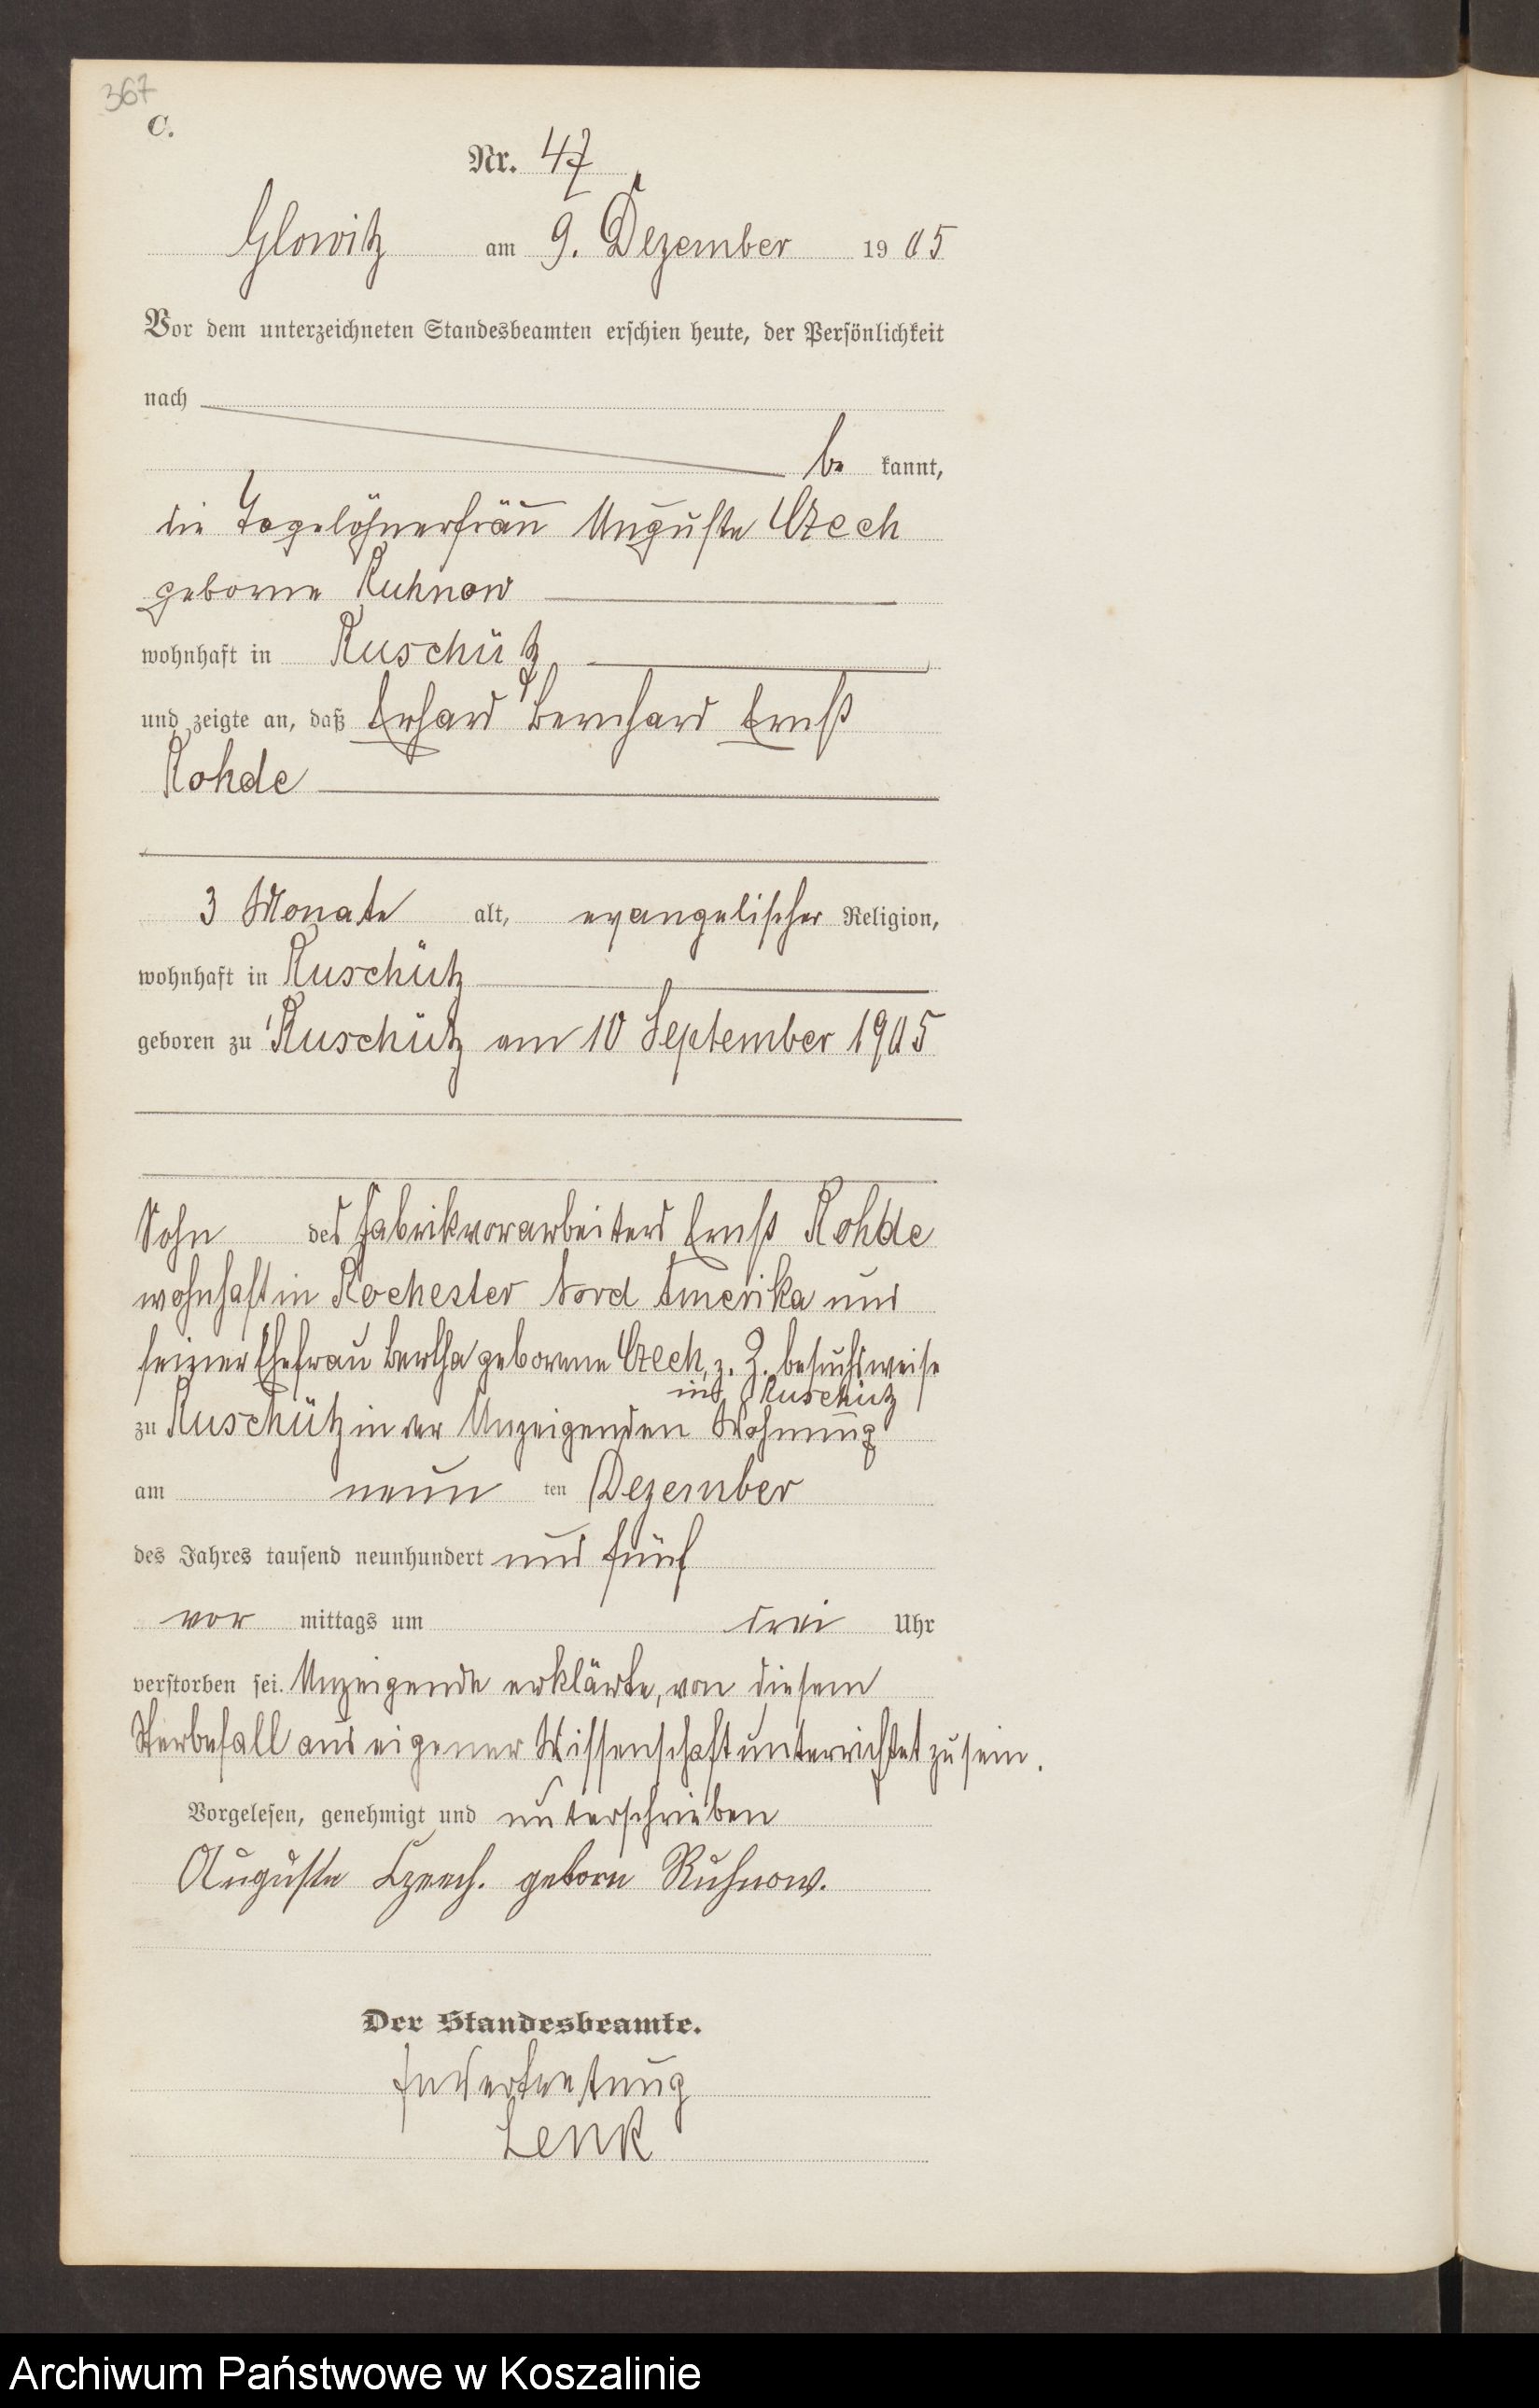 367
C.
Nr. 47
Glowitz am 9. Dezember 1905
Vor dem unterzeichneten Standesbeamten erschien heute, der Persönlichkeit
nach
be kannt,
die Tagelöhnerfrau Auguste Czech
geborne Ruhnow
wohnhaft in Ruschütz,
und zeigte an, daß Erhard Bernhard Ernst
Rohde
3 Monate alt, evangelischer Religion,
wohnhaft in Ruschütz
geboren zu Ruschütz am 10 September 1905
Sohn des Fabrikvorarbeiters Ernst Rohde
wohnhaft in Rochester Nord Amerika und
seiner Ehefrau Bertha geborene Czech, z. Z. besuchsweise
in Ruschütz
zu Ruschütz in der Anzeigenden Wohnung
am neun ten Dezember
des Jahres tausend neunhundert und fünf
vor mittags um drei Uhr
verstorben sei. Anzeigende erklärte, von diesem
Sterbefall aus eigener Wissenschaft unterrichtet zu sein.
Vorgelesen, genehmigt und unterschrieben
Auguste Czech. geborn Ruhnow.
Der Standesbeamte.
In Vertretung
Lenk
Archiwum Państwowe w Koszalinie